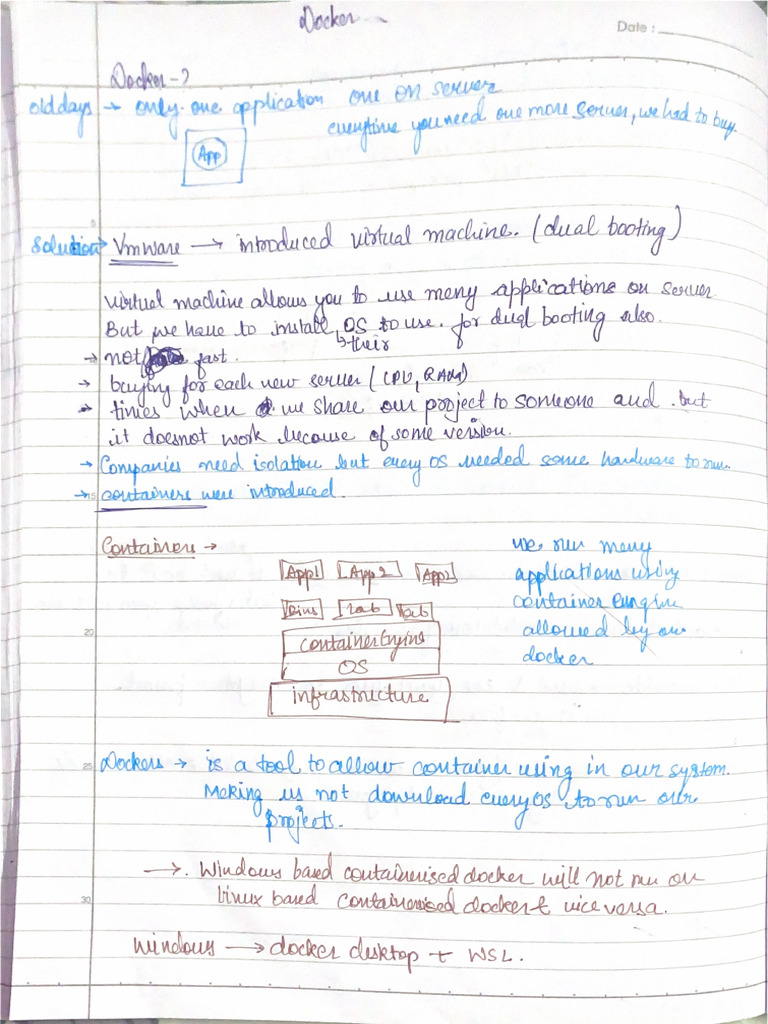 Docker
Date :
Docker - ?
old days → only one application one on server
everytime you need one more server, we had to buy.
App
5
Solution → Vmware → introduced virtual machine. (dual booting)
Virtual machine allows you to use many applications on server
But we have to install OS to use. for dual booting also.
their
→ not fast.
→ buying for each new server (CPU, RAM)
→ times when we share our project to someone and but
it doesnot work because of some version.
→ Companies need isolation but every OS needed some hardware to run.
15 → containers were introduced.
Containers →
we run many
applications using
container engine
allowed by
docker
App1 App2
20
Container Engine
OS
infrastructure
25 Dockers → is a tool to allow container using in our system.
Making us not download every OS to run our
projects.
→. Windows based containerised docker will not run on
30 linux based containerised docker & vice versa.
Windows → docker desktop + WSL.